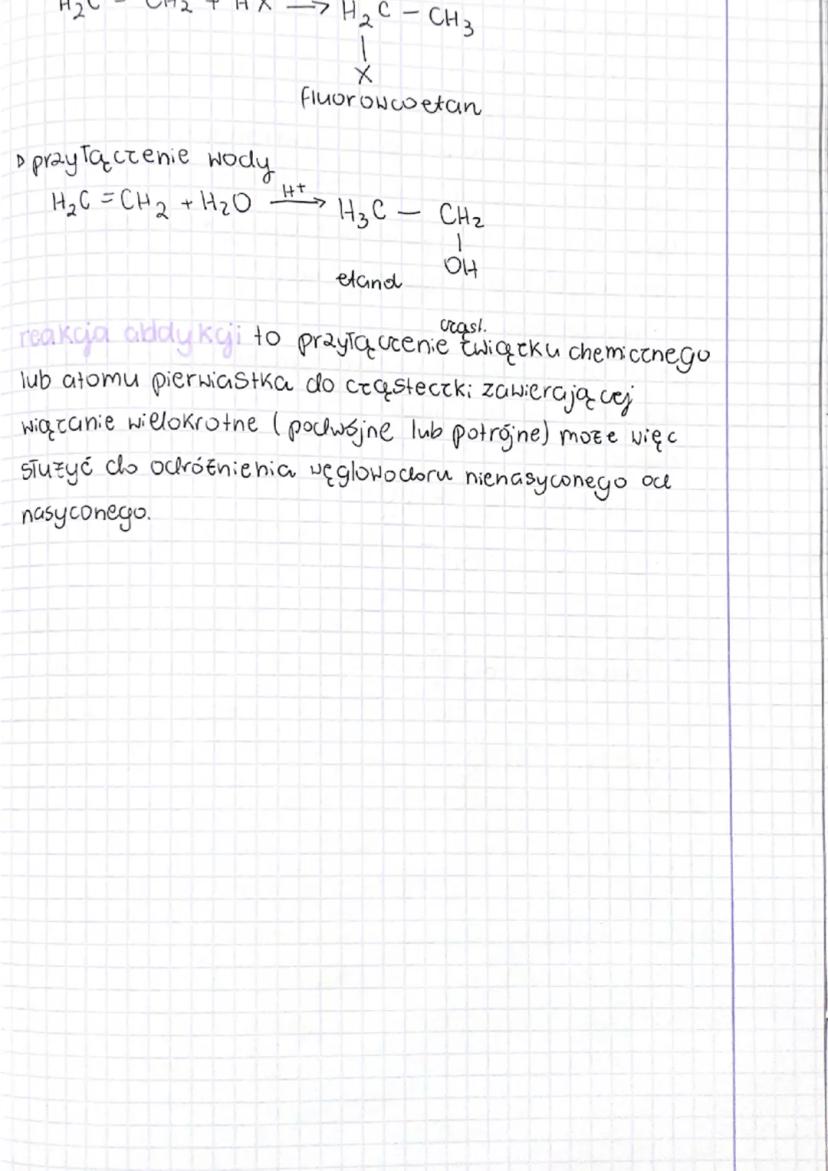 H₂C = CH₂ + HX → H₂C – CH₃
|
X
fluorowcoetan
▷ przyłączenie wody
H₂C = CH₂ + H₂O H⁺→ H₃C – CH₂
|
OH
etanol
cząst.
reakcja addykcji to przyłączenie związku chemicznego
lub atomu pierwiastka do cząsteczki zawierającej
wiązanie wielokrotne (podwójne lub potrójne) może więc
służyć do odróżnienia węglowodoru nienasyconego od
nasyconego.